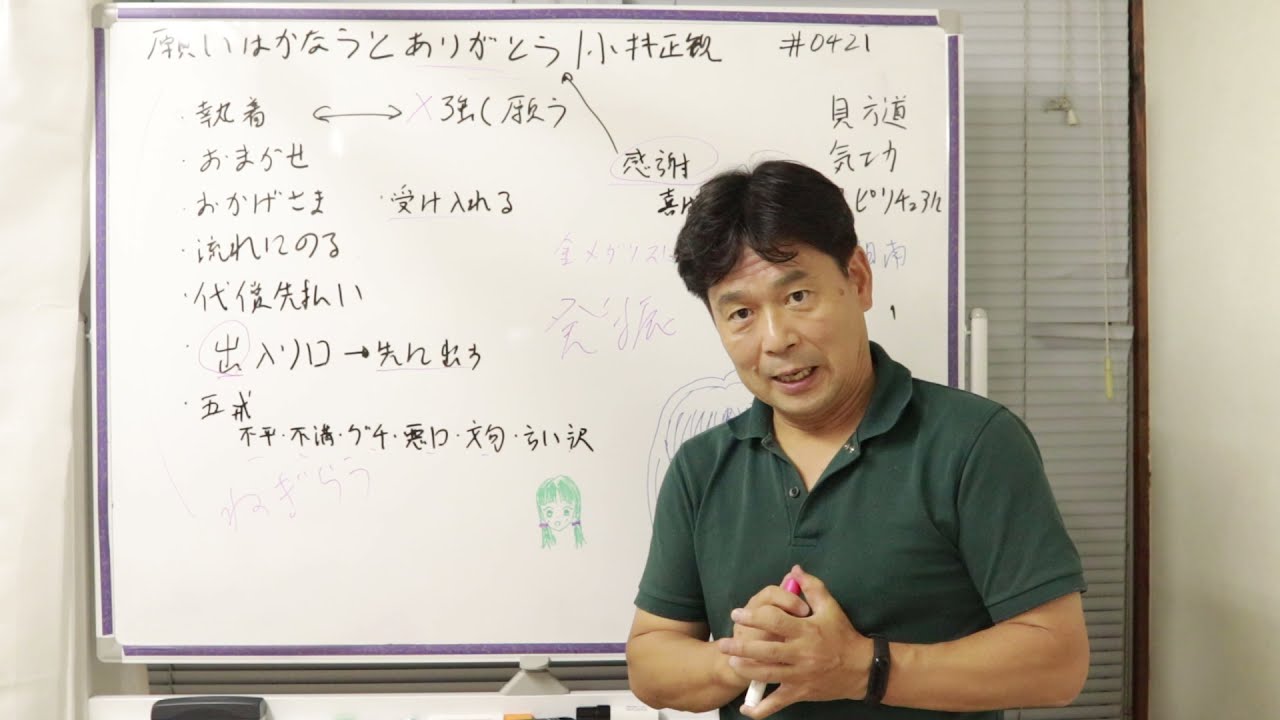 願いはかなうとありがとう/小林正観 #0421
・執着 ⟷ ×強く願う
・おまかせ
・おかげさま ・受け入れる
・流れにのる
・代償先払い
・出入り口→先に出す
・五戒
不平・不満・グチ・悪口・文句・言い訳
ねぎらう
感謝
喜
金メダリスト
発振
見方道
ピリチュアル
南